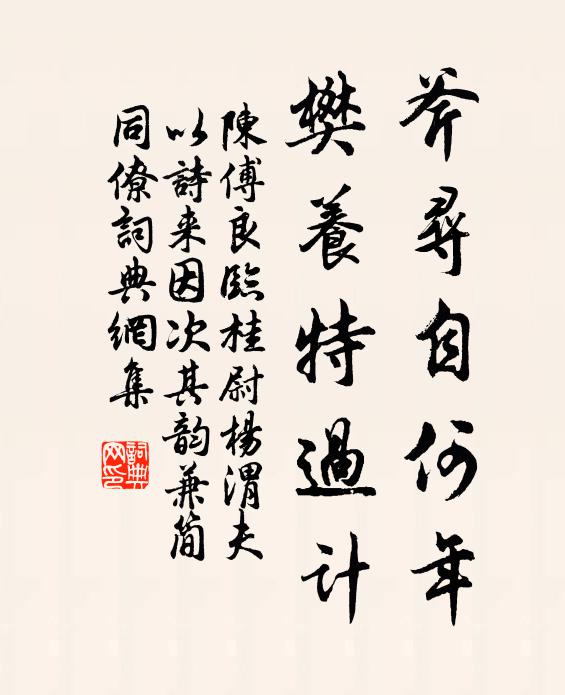 斧尋自何年
樊養特過計
陳傅良臨桂尉楊渭夫
以詩来因次其韵兼简
同僚詞典網集
詞典网印